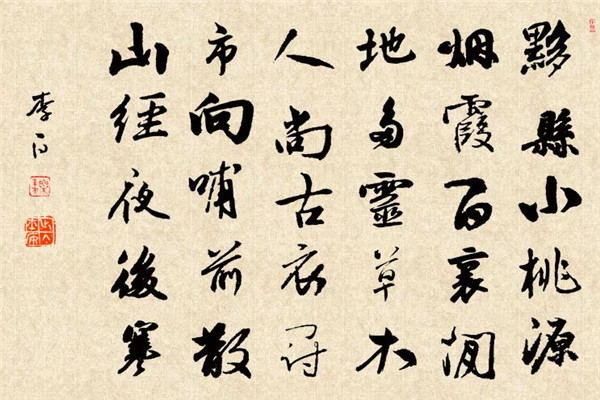 黟縣小桃源
烟霞百裏間
地多靈草木
人尚古衣冠
市向哺前散
山經夜後寒
李白